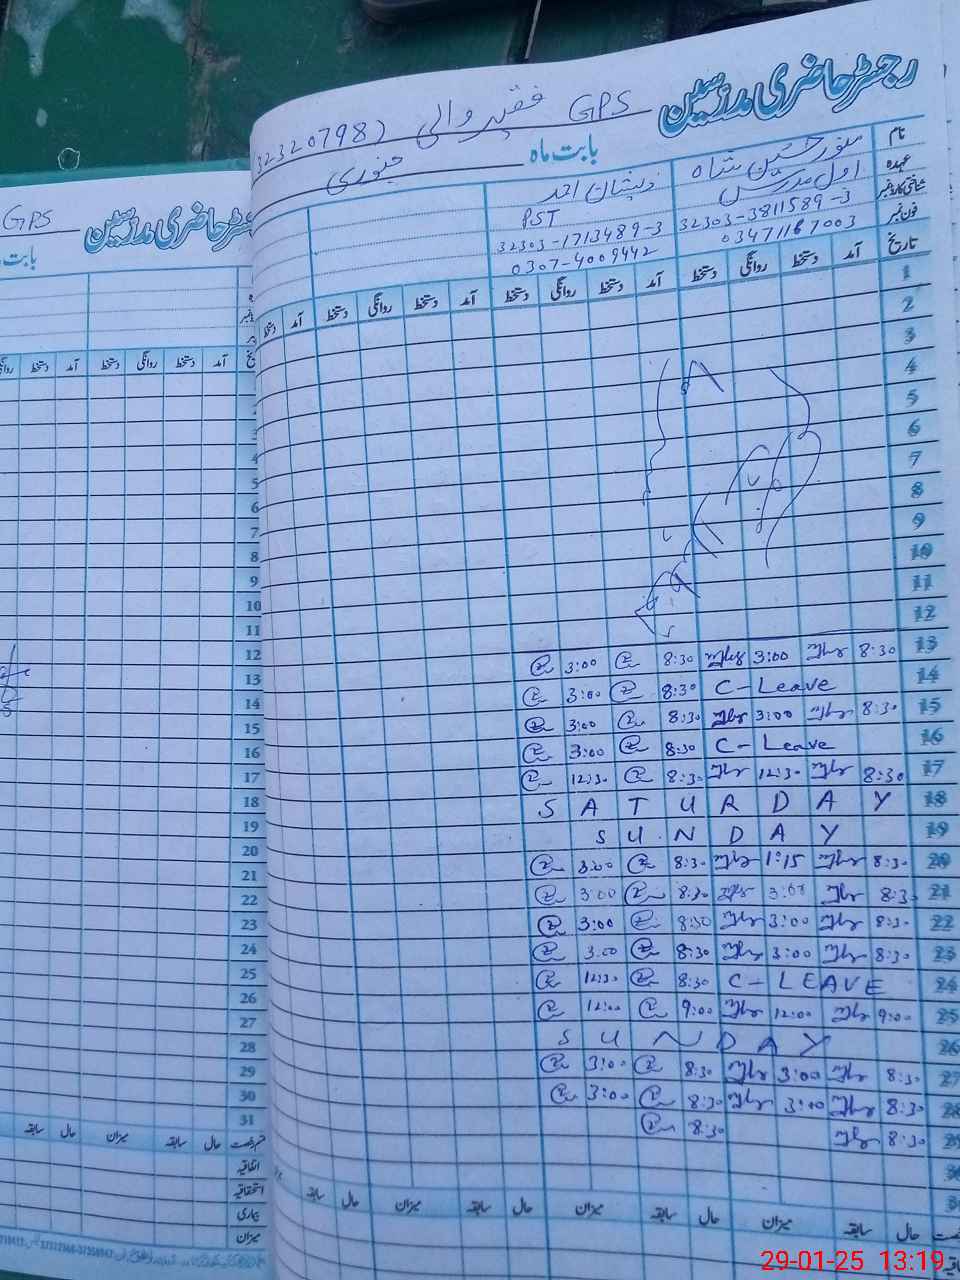 رجسٹر حاضری مدرسین GPS فقیر والی (32320798
بابت ماہ جنوری
نام منور حسین شاہ ذیشان احمد
عہدہ اول مدرس PST
شناختی کارڈ نمبر 32303-3811589-3 32303-1713489-3
فون نمبر 03471167003 0307-4009442
تاریخ آمد دستخط روانگی دستخط آمد دستخط روانگی دستخط آمد دستخط روانگی دستخط آمد دستخط
1
2
3
4
5
6
7
8
9
10
11
12
13 8:30 3:00 8:30 3:00
14 C-Leave 8:30 3:00
15 8:30 3:00 8:30 3:00
16 C-Leave 8:30 3:00
17 8:30 12:30 8:30 12:30
18 SATURDAY
19 SUNDAY
20 8:30 1:15 8:30 3:00
21 8:30 3:00 8:30 3:00
22 8:30 3:00 8:30 3:00
23 8:30 3:00 8:30 3:00
24 C-LEAVE 8:30 12:30
25 9:00 12:00 9:00 12:00
26 SUNDAY
27 8:30 3:00 8:30 3:00
28 8:30 3:00 8:30 3:00
29 8:30 8:30
30
حال سابقہ میزان حال سابقہ میزان حال سابقہ میزان حال سابقہ
رجسٹر حاضری مدرسین GPS
بابت
آمد دستخط روانگی دستخط آمد دستخط
4
5
6
7
8
9
10
11
12
13
14
15
16
17
18
19
20
21
22
23
24
25
26
27
28
29
30
31
حال سابقہ میزان حال سابقہ
اتفاقیہ
استحقاقیہ
بیماری
میزان
29-01-25 13:19